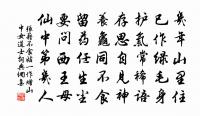 幾年山里住
已作綠毛身
護氣常稀語
存思自見神
養龜同不食
留藥任生塵
要問西王母
仙中第幾人
張籍不食姑一作贈山
中女道士詞典網書